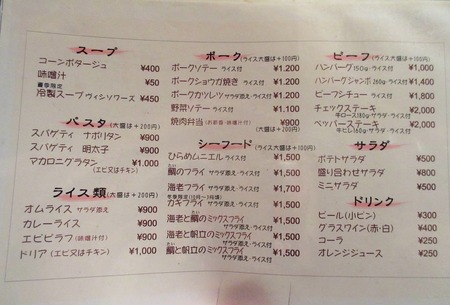 スープ
コーンポタージュ ¥400
味噌汁 ¥50
夏季限定
冷製スープ ヴィシソワーズ ¥450
パスタ (大盛は+200円)
スパゲティ ナポリタン ¥900
スパゲティ 明太子 ¥900
マカロニグラタン ¥1.000
(エビ又はチキン)
ライス類 (大盛は+200円)
オムライス サラダ添え ¥900
カレーライス ¥900
エビピラフ (味噌汁付) ¥900
ドリア (エビ又はチキン) ¥1,000
ポーク (ライス大盛は+100円)
ポークソテー ライス付 ¥1.200
ポークショウガ焼き ライス付 ¥1.200
ポークカツレツ サラダ添え・ライス付 ¥1.200
野菜ソテー ライス付 ¥1.100
焼肉弁当 (お新香・味噌汁付) ¥900
シーフード (ライス大盛は+100円)
ひらめムニエル ライス付 ¥1,500
鯛のフライ サラダ添え・ライス付 ¥1,500
海老フライ サラダ添え・ライス付 ¥1,700
カキフライ サラダ添え・ライス付 ¥1,500
海老と鯛のミックスフライ ¥1,500
サラダ添え・ライス付
海老と帆立のミックスフライ ¥1,500
サラダ添え・ライス付
鯛と帆立のミックスフライ ¥1,500
サラダ添え・ライス付
ビーフ (ライス大盛は+100円)
ハンバーグ 150g・ライス付 ¥1,000
ハンバーグジャンボ 260g・ライス付 ¥1,400
ビーフシチュー ライス付 ¥1,800
チェックステーキ ¥2,000
牛ロース180g・サラダ・ライス付
ペッパーステーキ ¥2,000
牛ヒレ160g・サラダ・ライス付
サラダ
ポテトサラダ ¥500
盛り合わせサラダ ¥800
ミニサラダ ¥500
ドリンク
ビール (小ビン) ¥300
グラスワイン (赤・白) ¥400
コーラ ¥250
オレンジジュース ¥250